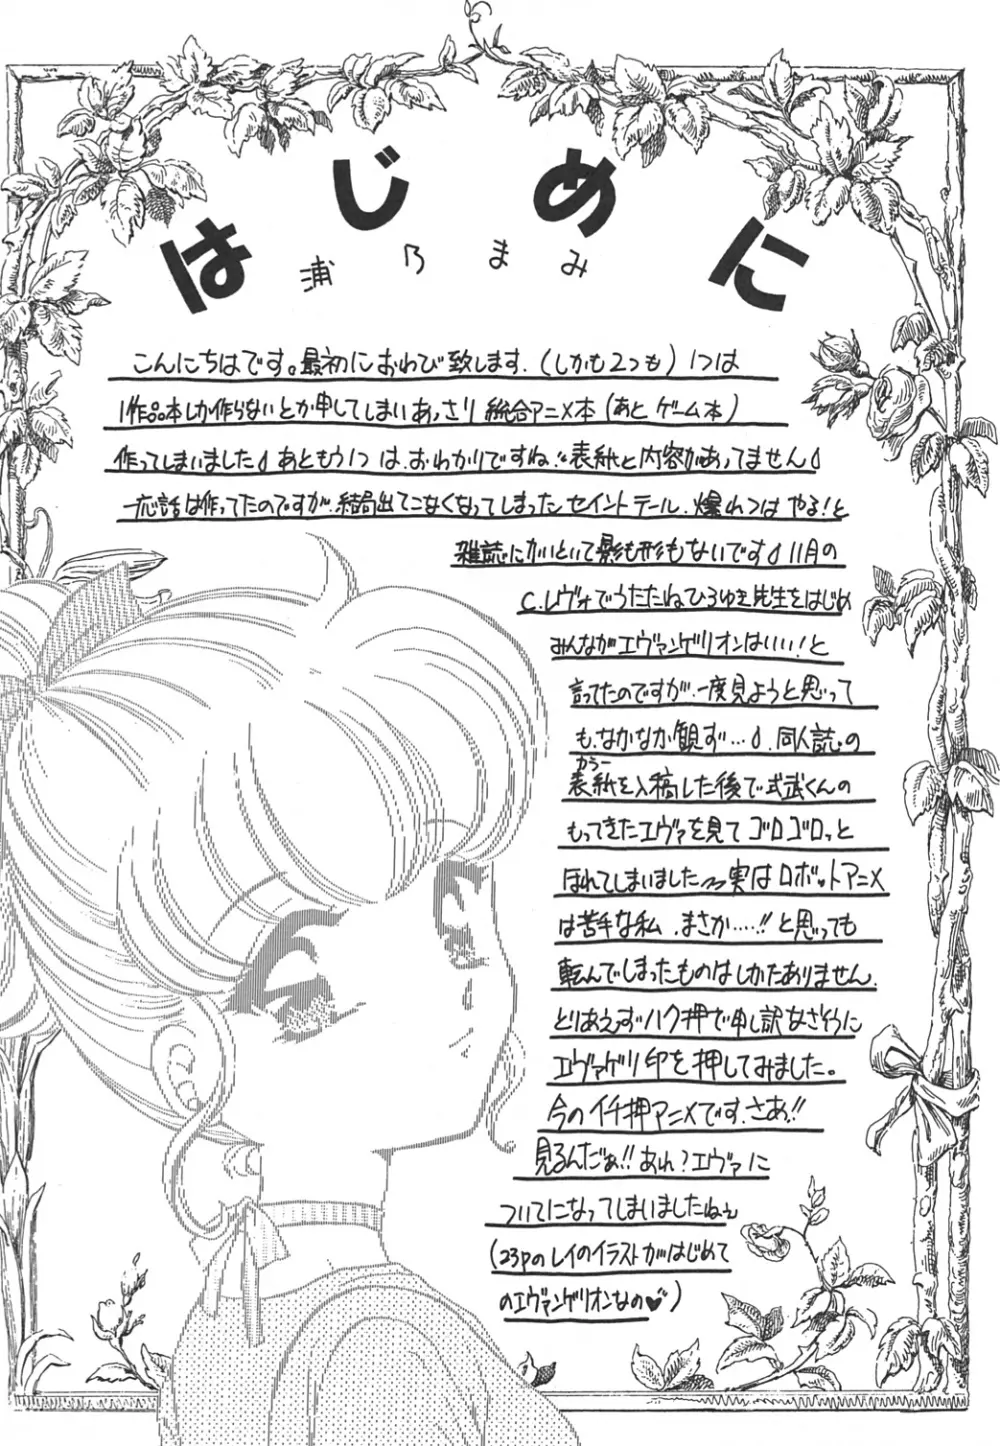 はじめに
浦乃まみ
こんにちはです。最初におわび致します.(しかも2つも)1つは
1作品本しか作らないとか申してしまいあっさり総合アニメ本(あとゲーム本)
作ってしまいました あともう1つは、おわかりですね、表紙と内容があってません
一応話は作ってたのですが、結局出てこなくなってしまったセイントテール、爆れつは やる!と
雑誌にかいといて影も形もないです 11月の
C.レヴォでうたたねひろゆき先生をはじめ
みんながエヴァンゲリオンはいい!と
言ってたのですが、一度見ようと思って
も、なかなか観ず…、同人誌の
カラー
表紙を入稿した後で式武くんの
もってきたエヴァを見てゴロゴロっと
ほれてしまいました 実はロボットアニメ
は苦手な私、まさか……!!と思っても
転んでしまったものはしかたありません.
とりあえずハク押で申し訳なさそうに
エヴァゲリ印を押してみました。
今のイチ押アニメです、さあ!!
見るんだぁ!!あれ?エヴァに
ついてになってしまいましたねぇ
(23Pのレイのイラストがはじめて
のエヴァンゲリオンなの♥)